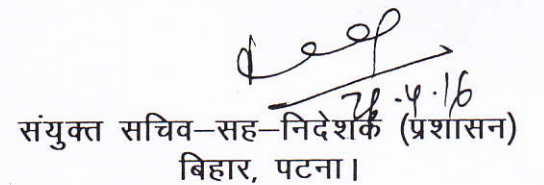 संयुक्त सचिव–सह–निदेशक (प्रशासन)
बिहार, पटना।